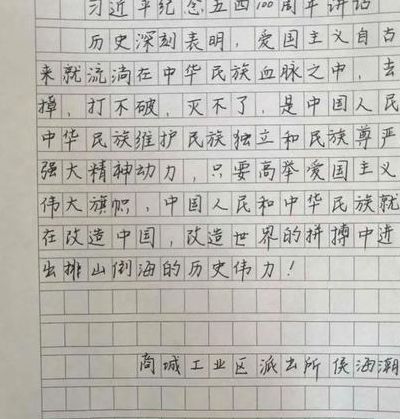 习近平纪念五四100周年讲话
历史深刻表明，爱国主义自古
来就流淌在中华民族血脉之中，去
掉，打不破，灭不了，是中国人民
中华民族维护民族独立和民族尊严
强大精神动力，只要高举爱国主义
伟大旗帜，中国人民和中华民族就
在改造中国，改造世界的拼搏中进
出排山倒海的历史伟力！
商城工业区派出所 侯海潮